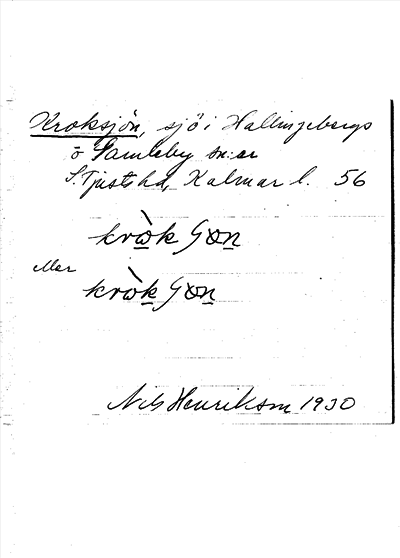 Kroksjön, sjö i Hallingebergs
o Gamleby sn:er
S. Tjusts hd, Kalmar l. 56
kròk
eller
kròk
Nils Henrikson 1930